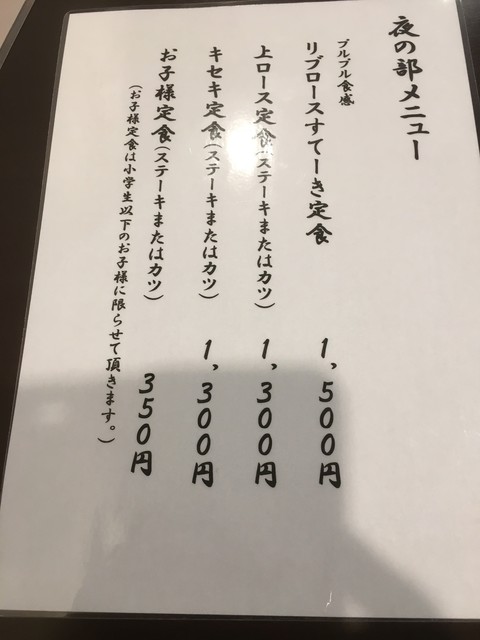 夜の部メニュー
プルプル食感
リブロースすてーき定食 1,500円
上ロース定食(ステーキまたはカツ) 1,300円
キセキ定食(ステーキまたはカツ) 1,300円
お子様定食(ステーキまたはカツ) 350円
(お子様定食は小学生以下のお子様に限らせて頂きます。)